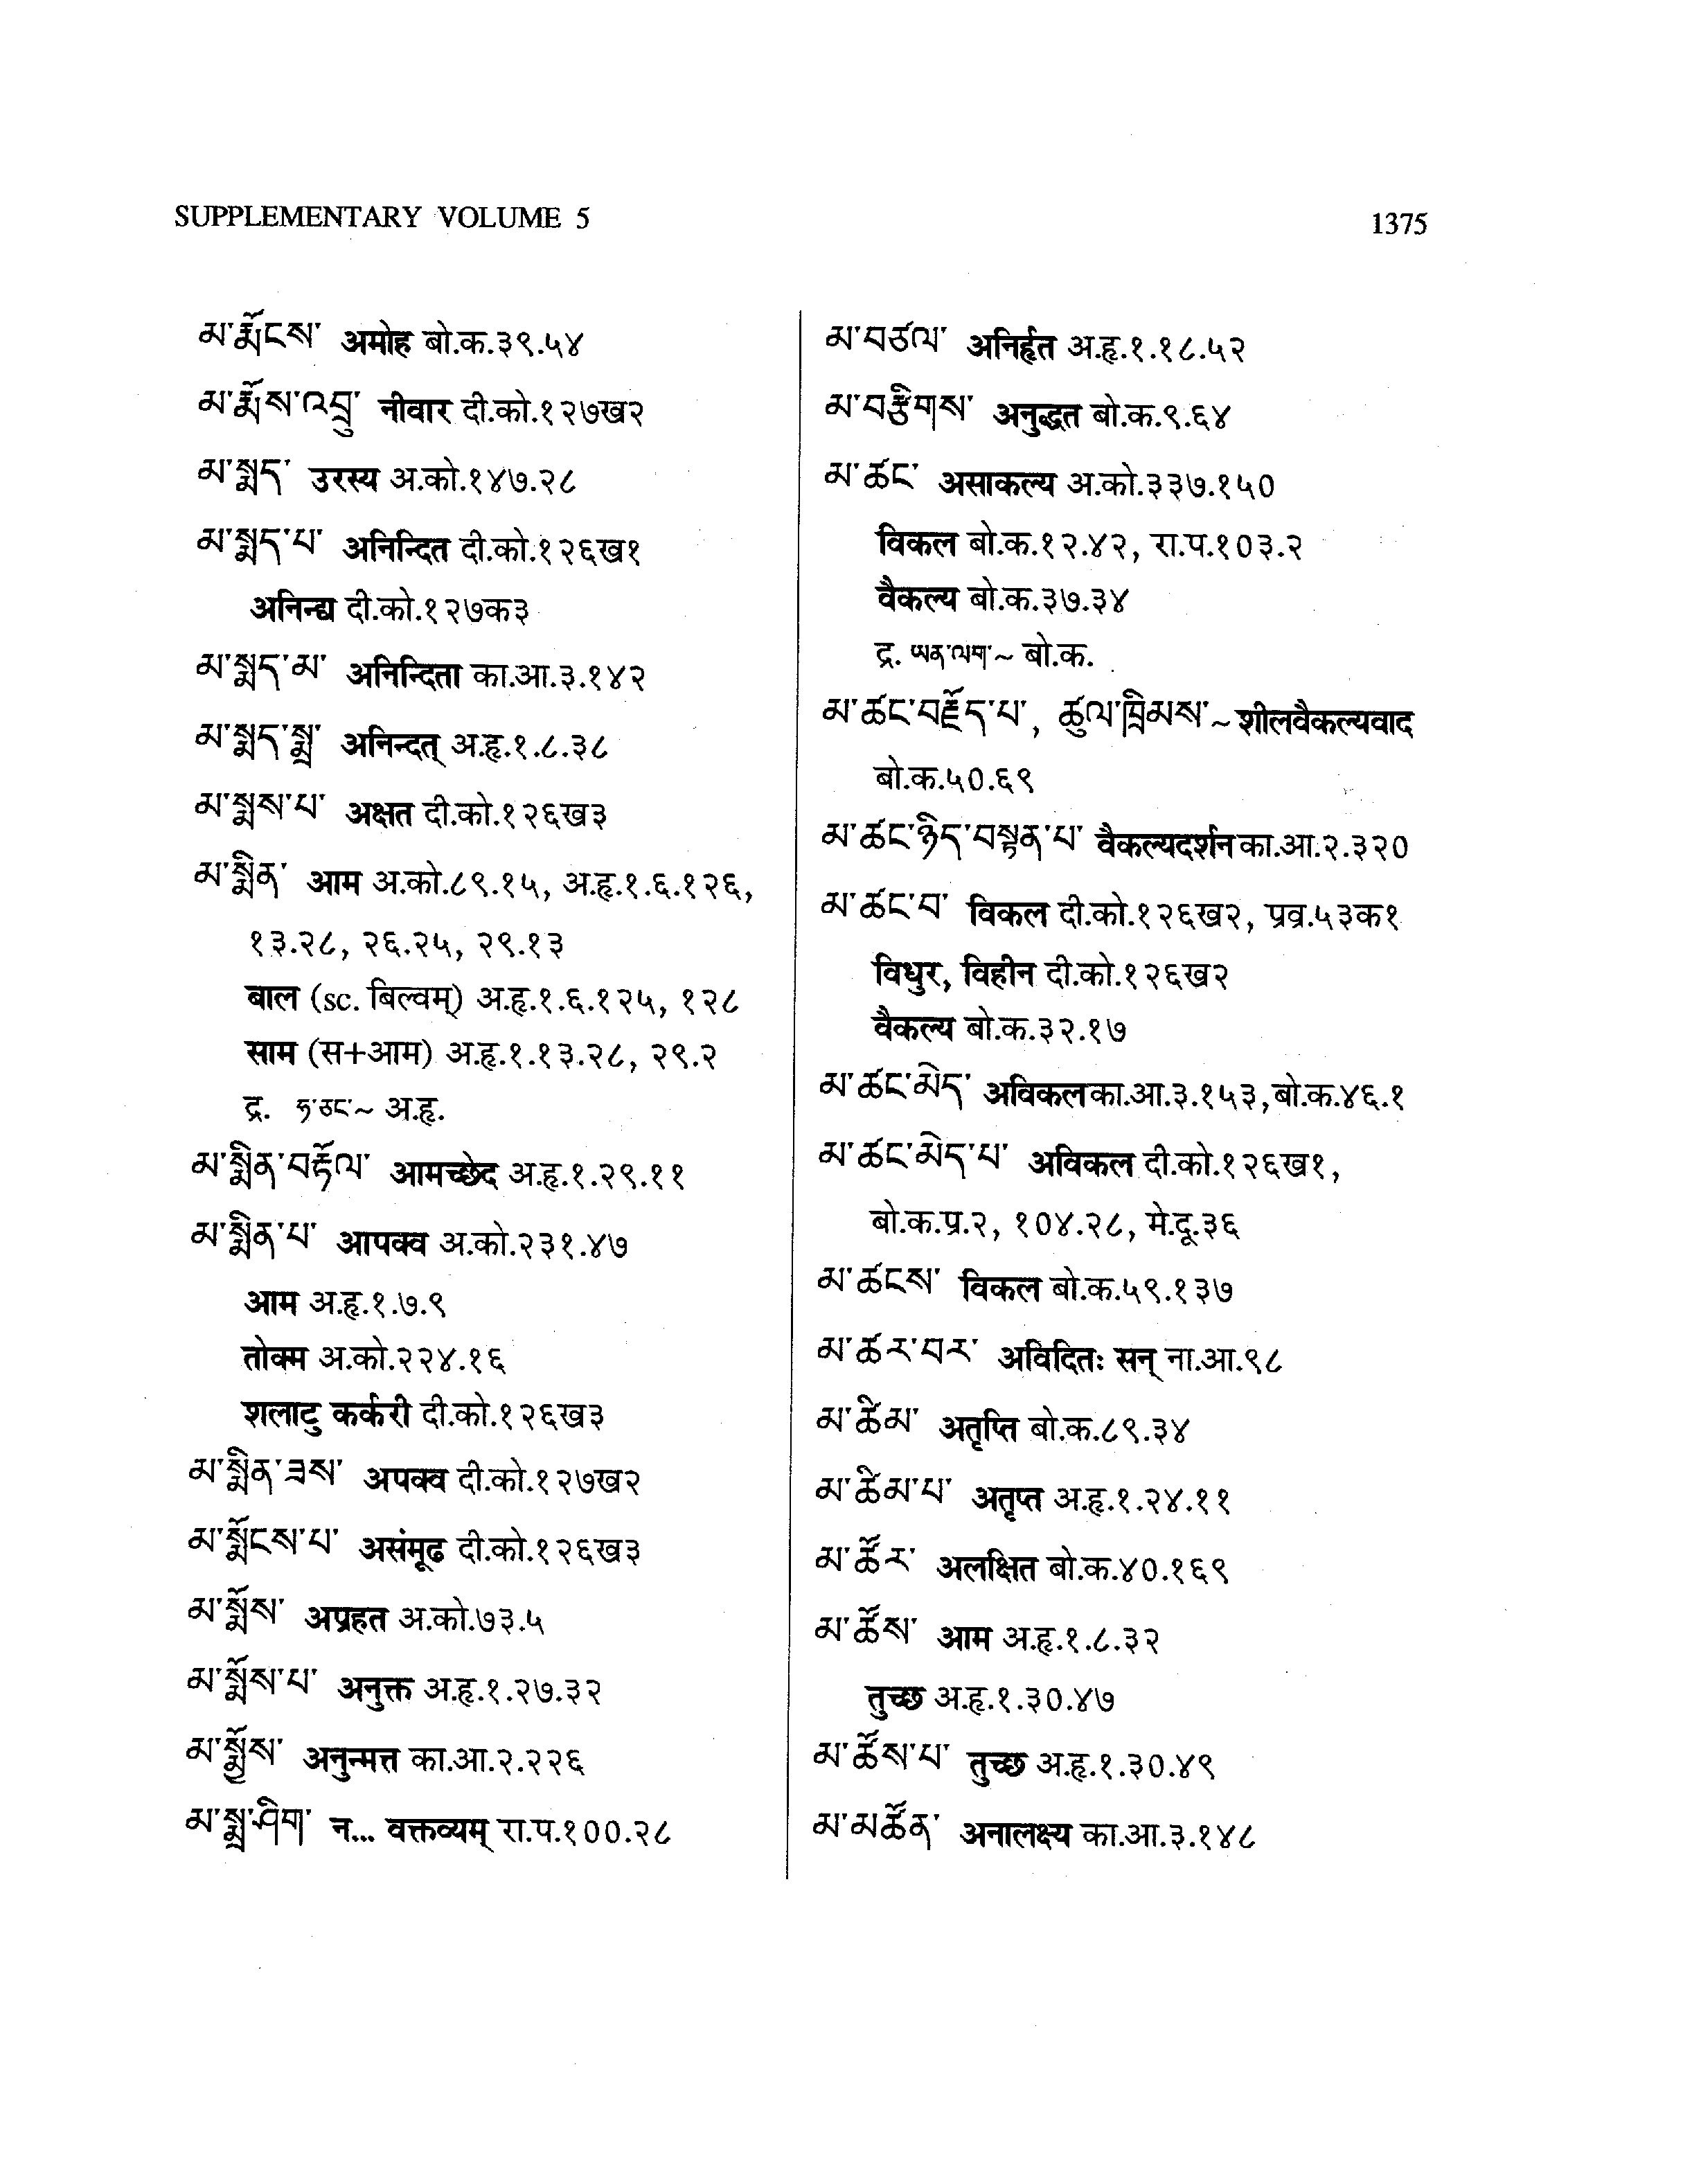 SUPPLEMENTARY VOLUME 5
1375
མ་རྨོངས་ अमोह बो.क.३९.५४
མ་རྨོས་འབྲུ་ नीवार दी.को.१२७ख२
མ་སྨད་ उरस्य अ.को.१४७.२८
མ་སྨད་པ་ अनिन्दित दी.को.१२६ख१
अनिन्द्य दी.को.१२७क३
མ་སྨད་མ་ अनिन्दिता का.आ.३.१४२
མ་སྨད་སྨྲ་ अनिन्दत् अ.हृ.१.८.३८
མ་སྨས་པ་ अक्षत दी.को.१२६ख३
མ་སྨིན་ आम अ.को.८९.१५, अ.हृ.१.६.१२६,
१३.२८, २६.२५, २९.१३
बाल (sc. बिल्वम्) अ.हृ.१.६.१२५, १२८
साम (स+आम) अ.हृ.१.१३.२८, २९.२
द्र. ཧ་ཅང་~ अ.हृ.
མ་སྨིན་བརྟོལ་ आमच्छेद अ.हृ.१.२९.११
མ་སྨིན་པ་ आपक्व अ.को.२३१.४७
आम अ.हृ.१.७.९
तोक्म अ.को.२२४.१६
शलाटु कर्करी दी.को.१२६ख३
མ་སྨིན་ཟས་ अपक्व दी.को.१२७ख२
མ་སྨོངས་པ་ असंमूढ दी.को.१२६ख३
མ་སྨོས་ अप्रहत अ.को.७३.५
མ་སྨོས་པ་ अनुक्त अ.हृ.१.२७.३२
མ་སྨྱོས་ अनुन्मत्त का.आ.२.२२६
མ་སྨྲ་ཤིག་ न... वक्तव्यम् रा.प.१००.२८
མ་བཙལ་ अनिर्हृत अ.हृ.१.१८.५२
མ་བརྩིགས་ अनुद्धत बो.क.९.६४
མ་ཚང་ असाकल्य अ.को.३३७.१५०
विकल बो.क.१२.४२, रा.प.१०३.२
वैकल्य बो.क.३७.३४
द्र. ཡན་ལག་~ बो.क.
མ་ཚང་བརྗོད་པ་, ཚུལ་ཁྲིམས་~ शीलवैकल्यवाद
बो.क.५०.६९
མ་ཚང་ཉིད་བསྟན་པ་ वैकल्यदर्शन का.आ.२.३२०
མ་ཚང་བ་ विकल दी.को.१२६ख२, प्रव्र.५३क१
विधुर, विहीन दी.को.१२६ख२
वैकल्य बो.क.३२.१७
མ་ཚང་མེད་ अविकल का.आ.३.१५३, बो.क.४६.१
མ་ཚང་མེད་པ་ अविकल दी.को.१२६ख१,
बो.क.प्र.२, १०४.२८, मे.दू.३६
མ་ཚངས་ विकल बो.क.५९.१३७
མ་ཚར་བར་ अविदितः सन् ना.आ.९८
མ་ཚིམ་ अतृप्ति बो.क.८९.३४
མ་ཚིམ་པ་ अतृप्त अ.हृ.१.२४.११
མ་ཚོར་ अलक्षित बो.क.४०.१६९
མ་ཚོས་ आम अ.हृ.१.८.३२
तुच्छ अ.हृ.१.३०.४७
མ་ཚོས་པ་ तुच्छ अ.हृ.१.३०.४९
མ་མཚོན་ अनालक्ष्य का.आ.३.१४८